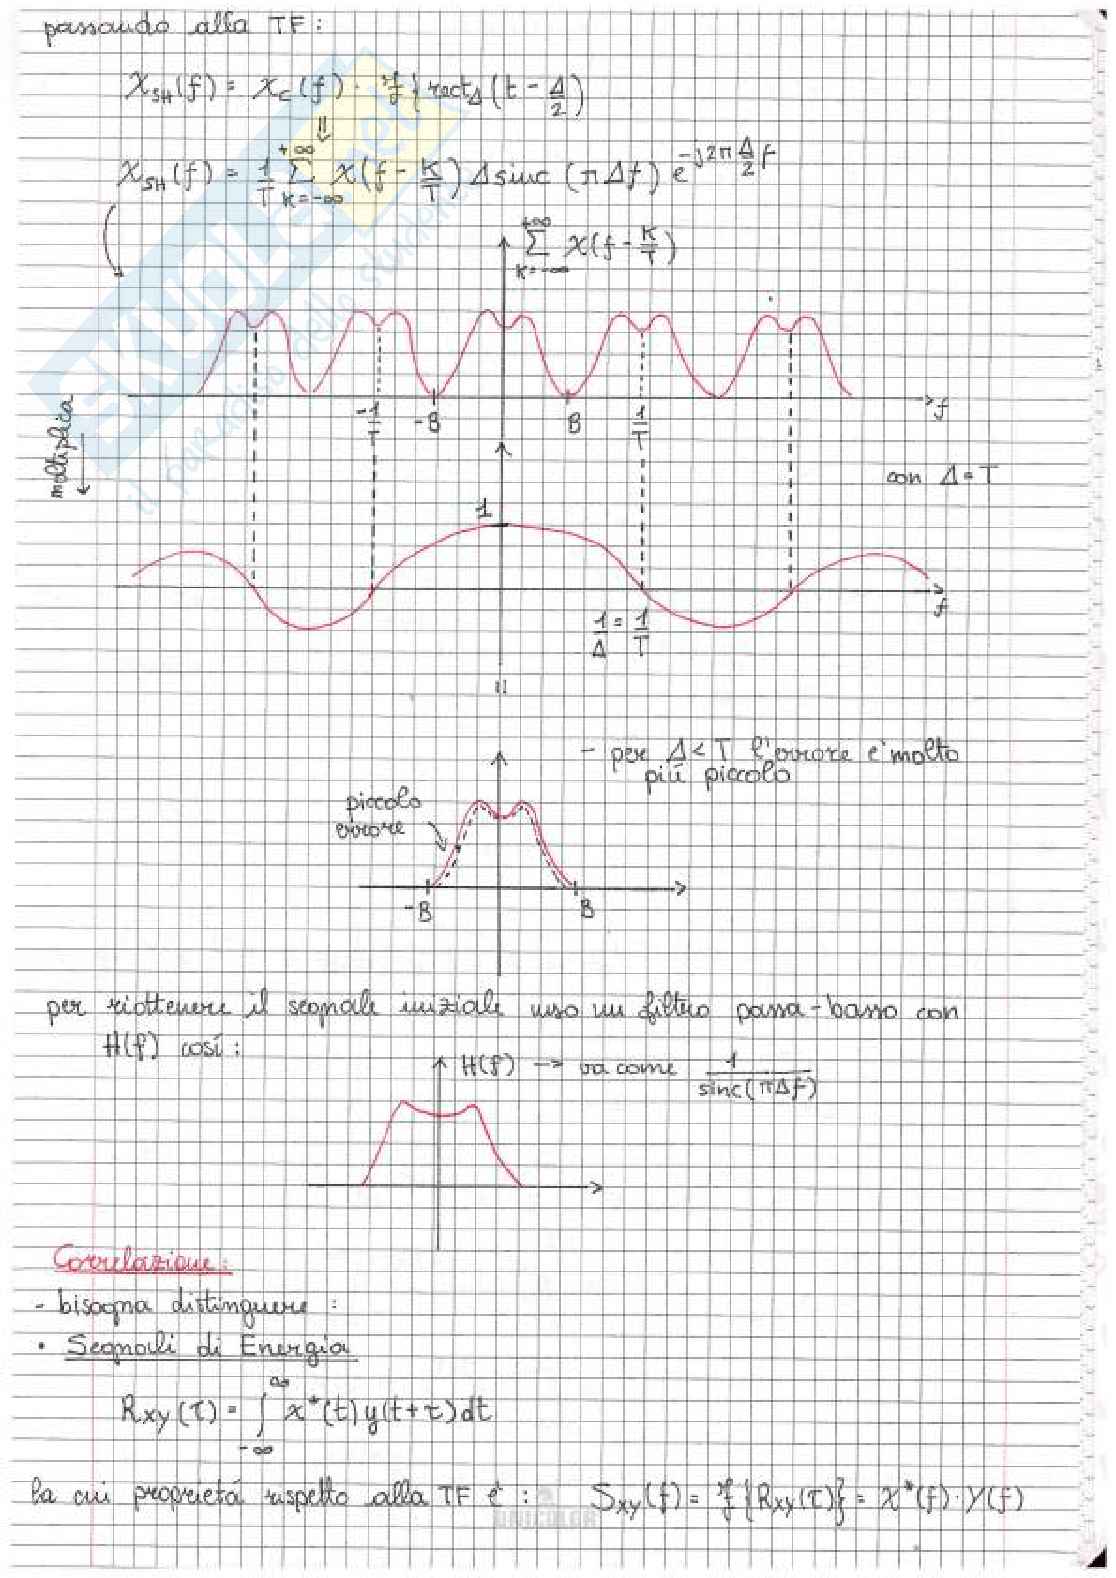 passando alla TF:
X_SH(f) = X_c(f) · F{rect_Δ(t - Δ/2)
⇓
X_SH(f) = 1/T Σ_{k=-∞}^{+∞} X(f - k/T) Δ sinc(πΔf) e^{-j2π Δ/2 f}
Σ_{k=-∞}^{+∞} X(f - k/T)
-1/T -B B 1/T f
moltiplica
con Δ=T
1
1/Δ = 1/T f
=
- per Δ<T l'errore é molto
piú piccolo
piccolo
errore
-B B
per riottenere il segnale iniziale uso un filtro passa-basso con
H(f) cosí:
H(f) → va come 1/sinc(πΔf)
Correlazione:
- bisogna distinguere:
• Segnali di Energia
R_xy(τ) = ∫_{-∞}^{∞} x*(t) y(t+τ) dt
la cui proprietá rispetto alla TF é: S_xy(f) = F{R_xy(τ)} = X*(f)·Y(f)
SKUOLA.net
il paradiso dello studente
UNICOLOR